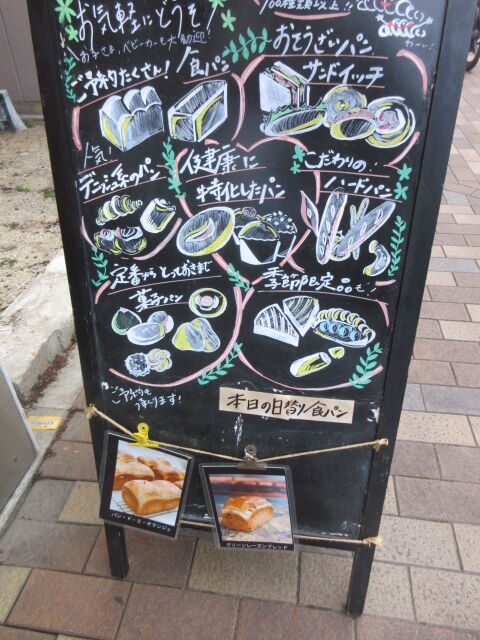 お気軽にどうぞ!
お子さま、ベビーカーも大歓迎!
100種類以上!!
ご予約たくさん!食パン
おそうざいパン
サンドイッチ
人気!
デニッシュ系のパン
健康に
特化したパン
こだわりの
ハードパン
定番からとっておきまで
菓子パン
季節限定品も!
ご予約も
承ります!
本日の日替り食パン
パン・ド・ミ・オランジェ
グリーンレーズンブレッド